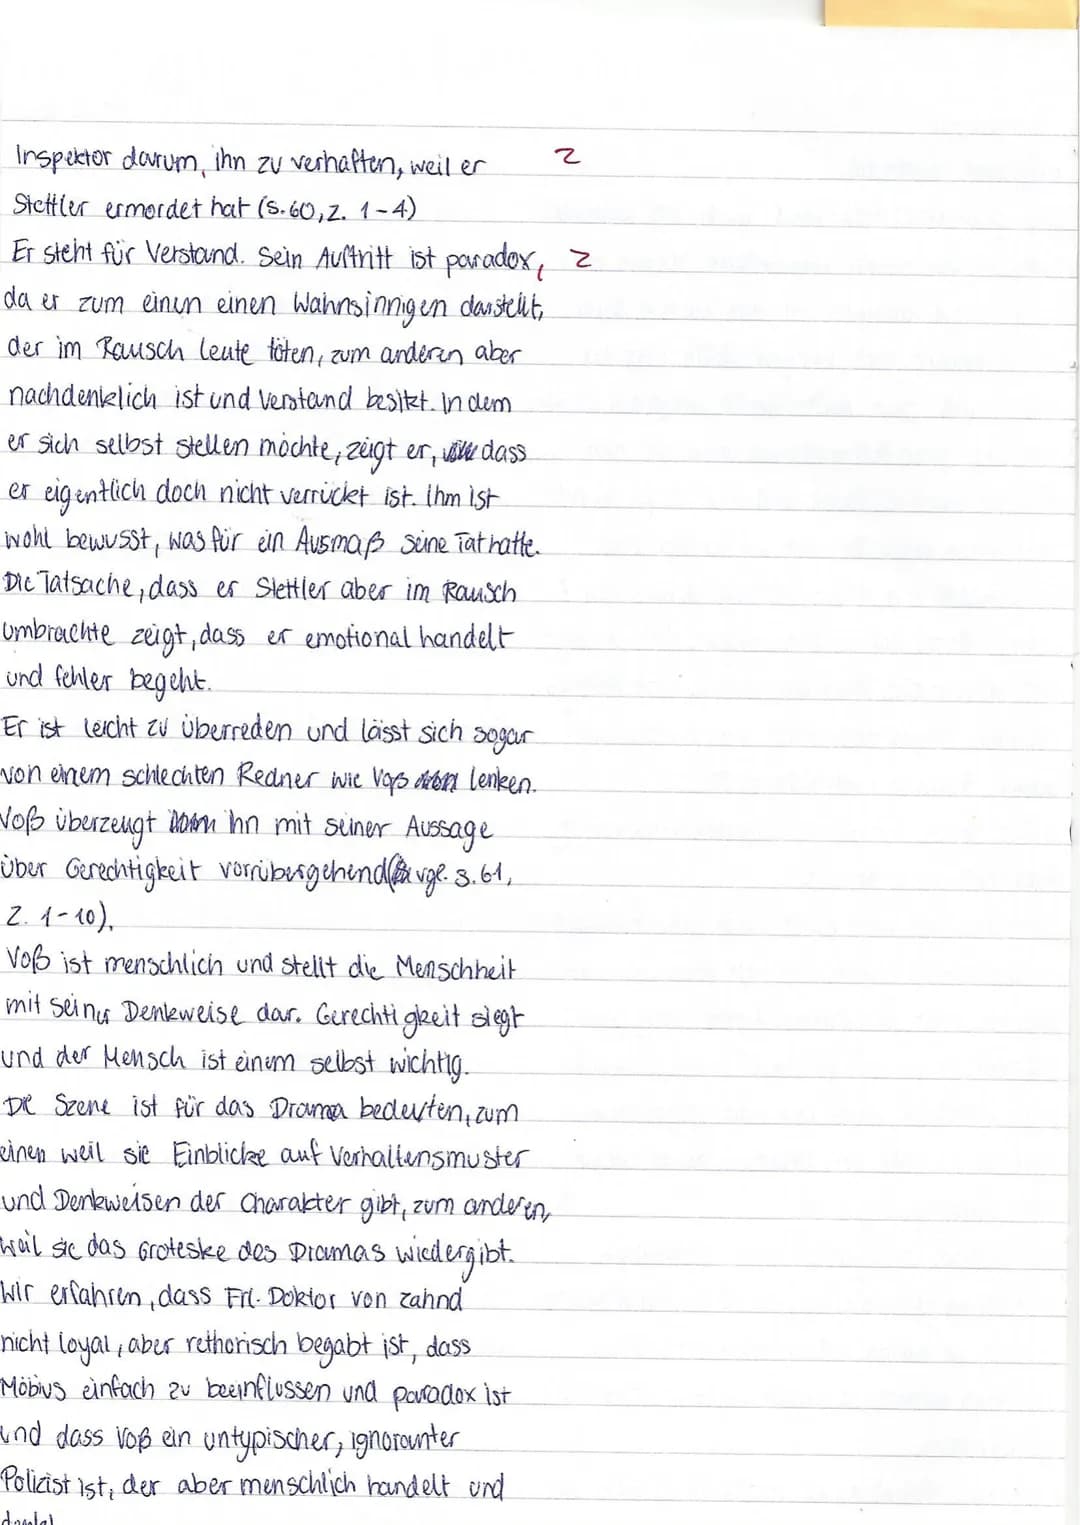 Inspektor darum, ihn zu verhaften, weil er Z
Stettler ermordet hat (S.60, Z. 1-4)
Er steht für Verstand. Sein Auftritt ist paradox, Z
da er zum einen einen Wahnsinnigen darstellt,
der im Rausch Leute töten, zum anderen aber
nachdenklich ist und Verstand besitzt. In dem
er sich selbst stellen möchte, zeigt er, dass
er eigentlich doch nicht verrückt ist. Ihm ist
wohl bewusst, was für ein Ausmaß seine Tat hatte.
Die Tatsache, dass er Stettler aber im Rausch
umbrachte zeigt, dass er emotional handelt
und fehler begeht.
Er ist leicht zu überreden und lässt sich sogar
von einem schlechten Redner wie Voß lenken.
Voß überzeugt ihn mit seiner Aussage
über Gerechtigkeit vorrübergehend (vgl. S.61,
Z. 1-10).
Voß ist menschlich und stellt die Menschheit
mit seiner Denkweise dar. Gerechtigkeit siegt
und der Mensch ist einem selbst wichtig.
Die Szene ist für das Drama bedeuten, zum
einen weil sie Einblicke auf Verhaltensmuster
und Denkweisen der Charakter gibt, zum anderen,
weil sie das Groteske des Dramas wiedergibt.
Wir erfahren, dass Frl. Doktor von Zahnd
nicht loyal, aber rethorisch begabt ist, dass
Möbius einfach zu beeinflussen und paradox ist
und dass Voß ein untypischer, ignoranter
Polizist ist, der aber menschlich handelt und